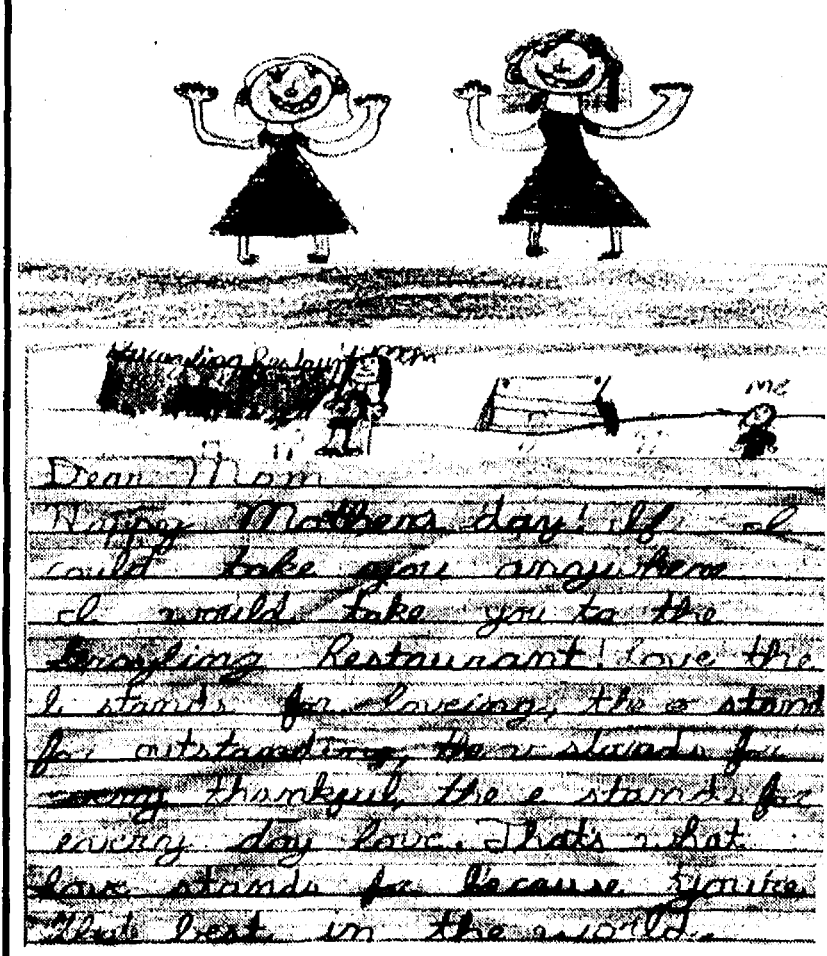 Restaurant mom
me
Dear Mom
Happy Mothers day! If I
could take you anywhere
I would take you to the
Grayling Restaurant! Love the
l stands for loveing, the o stand
for outstanding, the v stands for
very thankful, the e stands for
every day love. Thats what
love stands for because you're
That best in the world.